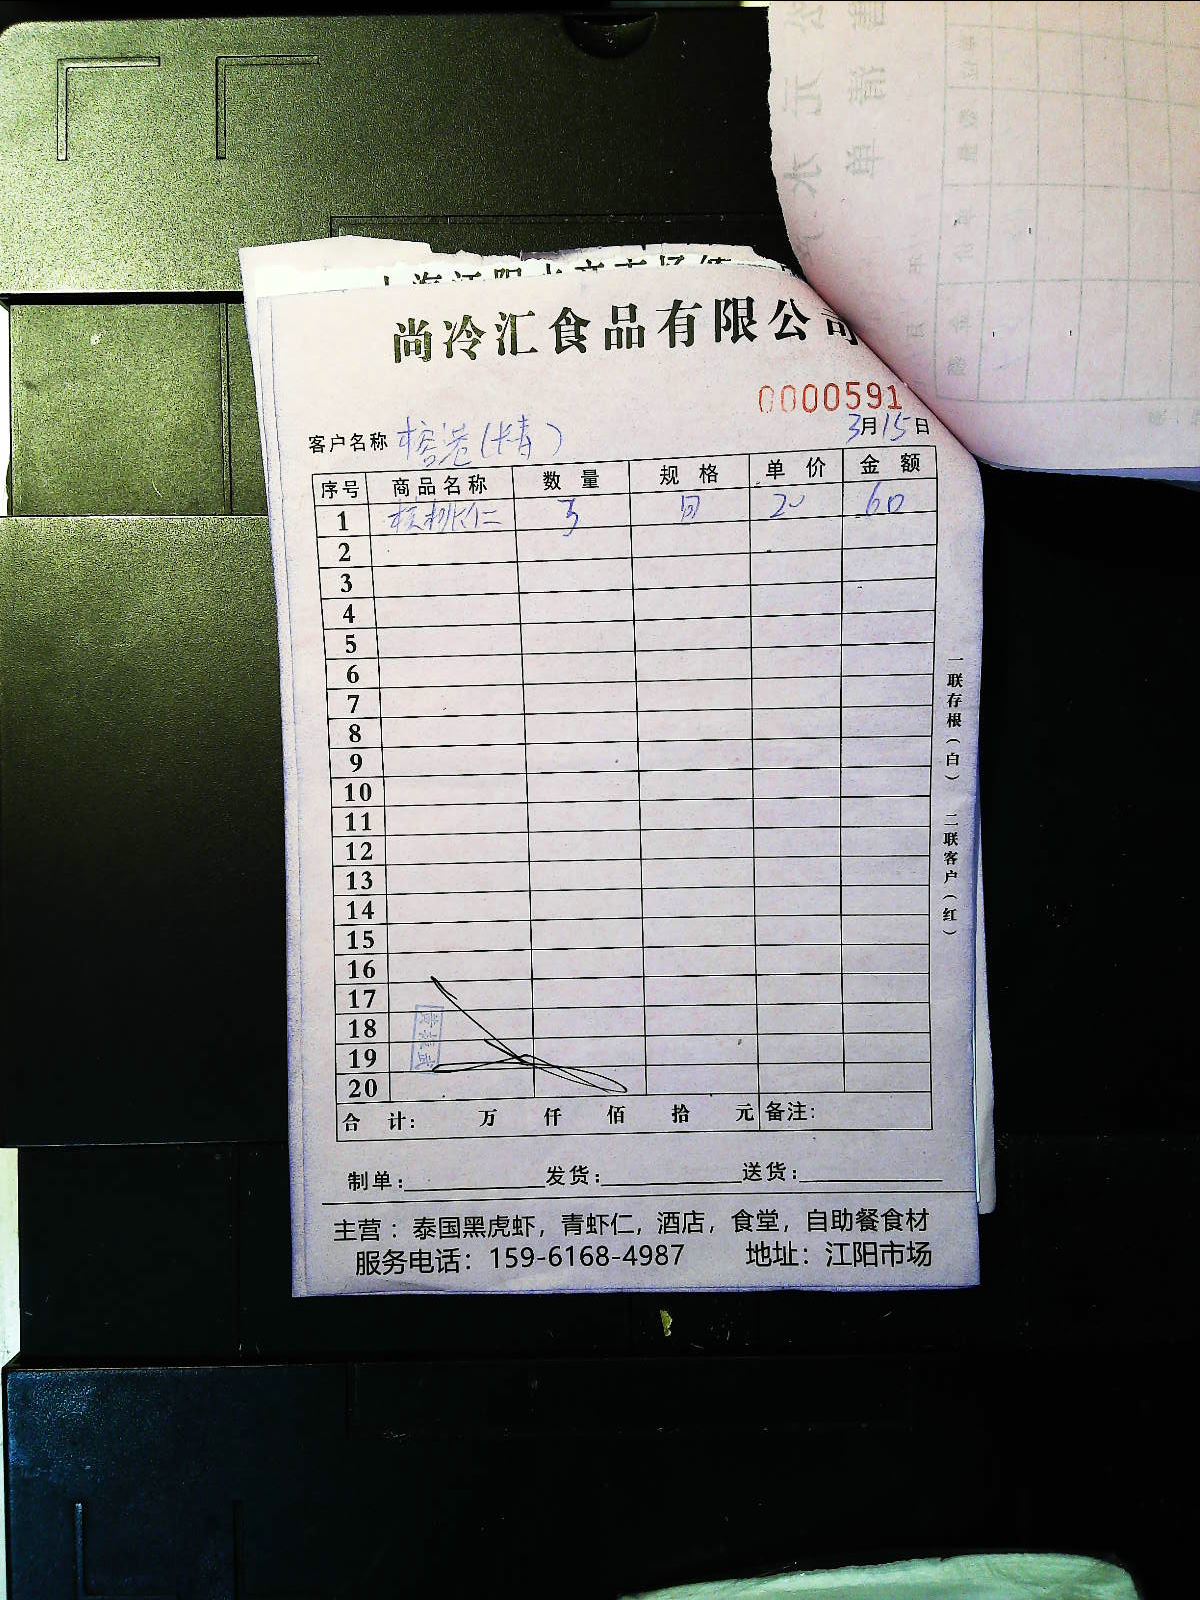 尚冷汇食品有限公司
0000591
客户名称 榕港(精) 3月15日
序号 商品名称 数量 规格 单价 金额
1 核桃仁 3 回 20 60
2
3
4
5
6
7
8
9
10
11
12
13
14
15
16
17
18
19
20
合计: 万 仟 佰 拾 元 备注:
制单: 发货: 送货:
主营：泰国黑虎虾，青虾仁，酒店，食堂，自助餐食材
服务电话：159-6168-4987 地址：江阳市场
一联存根(白) 二联客户(红)